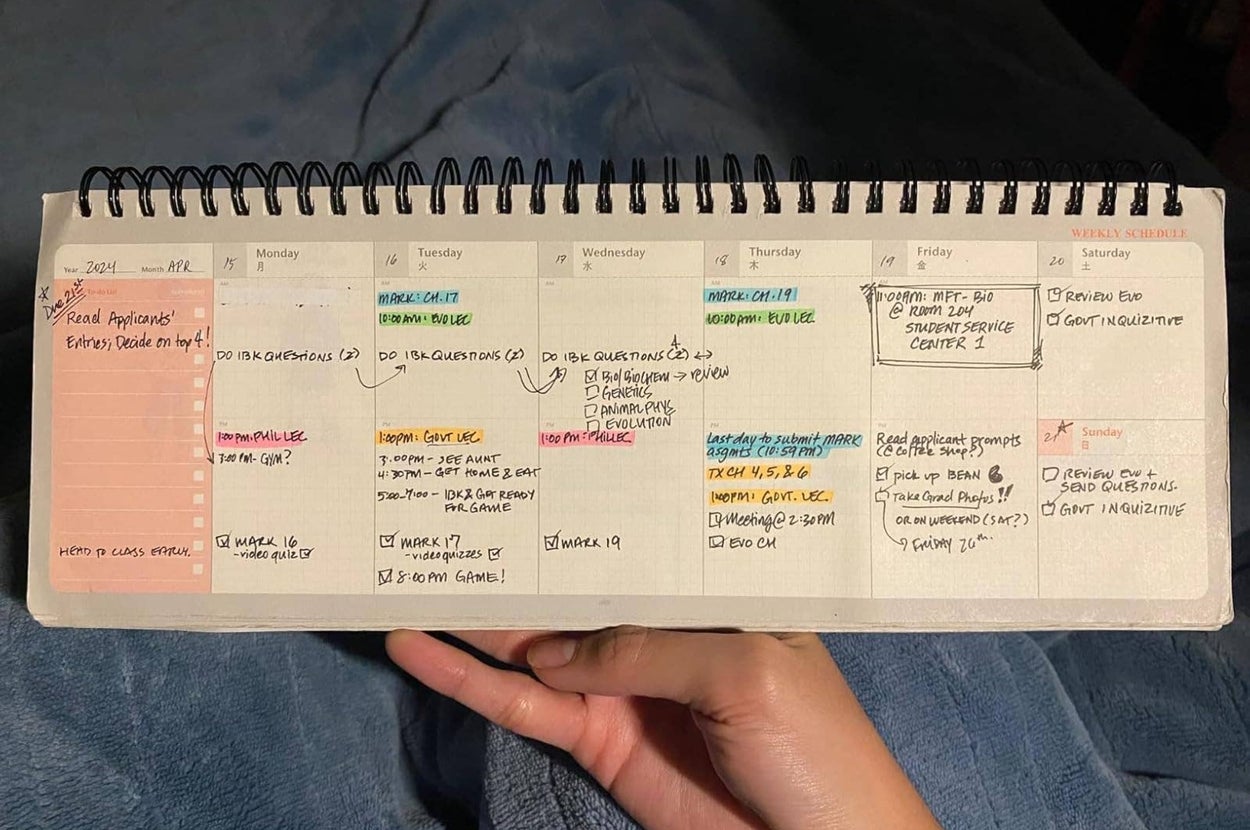 WEEKLY SCHEDULE
Year 2024 Month APR
To do List
* Due 21st
Read Applicants'
Entries; Decide on top 4!
HEAD TO CLASS EARLY.
15 Monday
月
AM
DO IBK QUESTIONS (2)
PM
1:00 PM: PHIL LEC
3:00 PM- GYM?
MARK 16
-video quiz
16 Tuesday
火
AM
MARK: CH. 17
10:00 AM: EVO LEC
DO IBK QUESTIONS (2)
PM
1:00PM: GOVT LEC
3:00PM- SEE AUNT
4:30PM- GET HOME & EAT
5:00-7:00 - IBK & GET READY
FOR GAME
MARK 17
-videoquizzes
8:00PM GAME!
17 Wednesday
水
AM
4
DO IBK QUESTIONS (2)
BIO/BIOCHEM → review
GENETICS
ANIMAL PHYS
EVOLUTION
1:00 PM: PHIL LEC
MARK 19
18 Thursday
木
AM
MARK: CH. 19
10:00AM: EVO LEC
Last day to submit MARK
asgmts (10:59PM)
TX CH 4, 5, & 6
1:00PM: GOVT. LEC.
Meeting @ 2:30PM
EVO CH
19 Friday
金
11:00AM: MFT- BIO
@ ROOM 204
STUDENT SERVICE
CENTER 1
PM
Read applicant prompts
(@ coffee shop?)
pick up BEAN
Take Grad Photos!!
OR ON WEEKEND (SAT?)
FRIDAY 26th.
20 Saturday
土
REVIEW EVO
GOVT INQUIZITIVE
21 Sunday
日
REVIEW EVO +
SEND QUESTIONS.
GOVT INQUIZITIVE